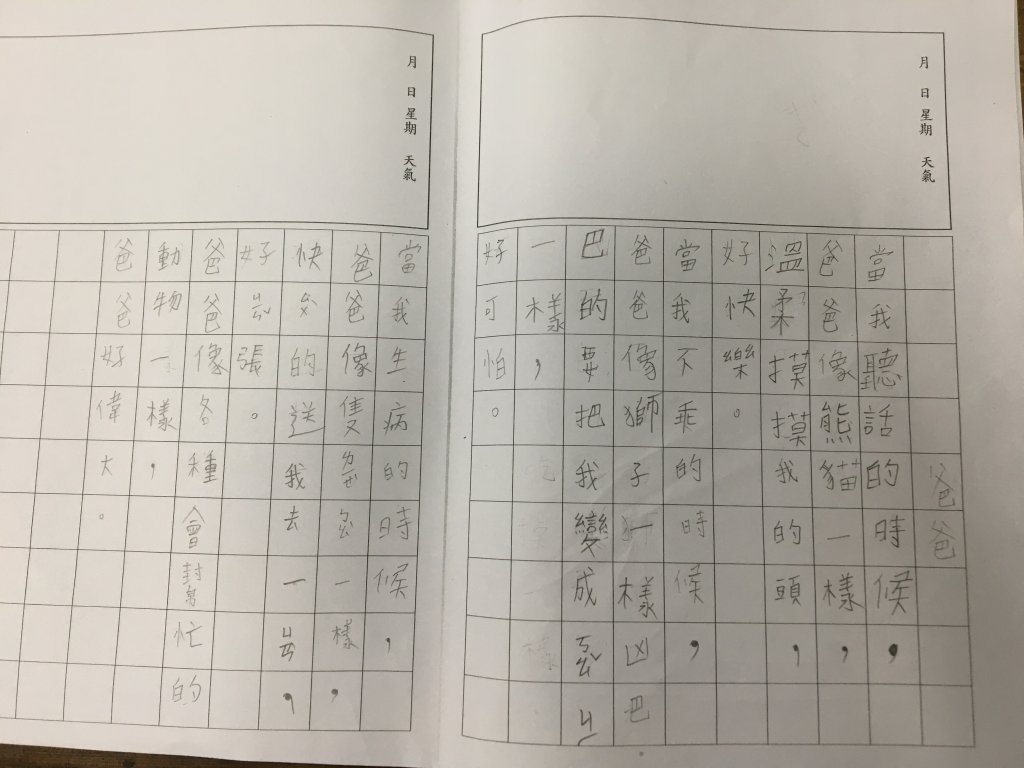 月 日 星期 天氣
爸爸
當我聽話的時候，
爸爸像熊貓一樣，
溫柔摸摸我的頭，
好快樂。
當我不乖的時候，
爸爸像獅子一樣凶巴
巴的要把我變成
一樣，
好可怕。
月 日 星期 天氣
當我生病的時候，
爸爸像隻一樣，
快的送我去一，
好張。
爸爸像各種會幫忙的
動物一樣，
爸爸好偉大。